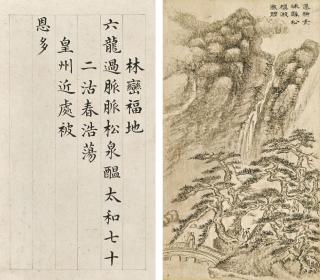 林巒福地
六龍過脈脈松泉醞太和七十
二沽春浩蕩
皇州近處被
恩多